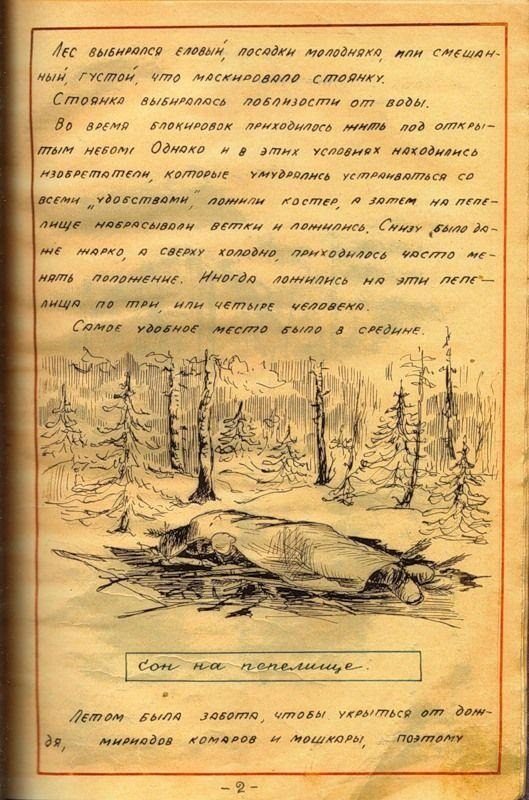 Лес выбирался еловый, посадки молодняка, или смешан-
ный, густой, что маскировало стоянку.
Стоянка выбиралась поблизости от воды.
Во время блокировок приходилось жить под откры-
тым небом! Однако и в этих условиях находились
изобретатели, которые умудрялись устраиваться со
всеми „удобствами," ложили костер, а затем на пепе-
лище набрасывали ветки и ложились. Снизу было да-
же жарко, а сверху холодно, приходилось часто ме-
нять положение. Иногда ложились на эти пепе-
лища по три, или четыре человека.
Самое удобное место было в средине.
Сон на пепелище.
Летом была забота, чтобы укрыться от дож-
дя, мириадов комаров и мошкары, поэтому
- 2 -